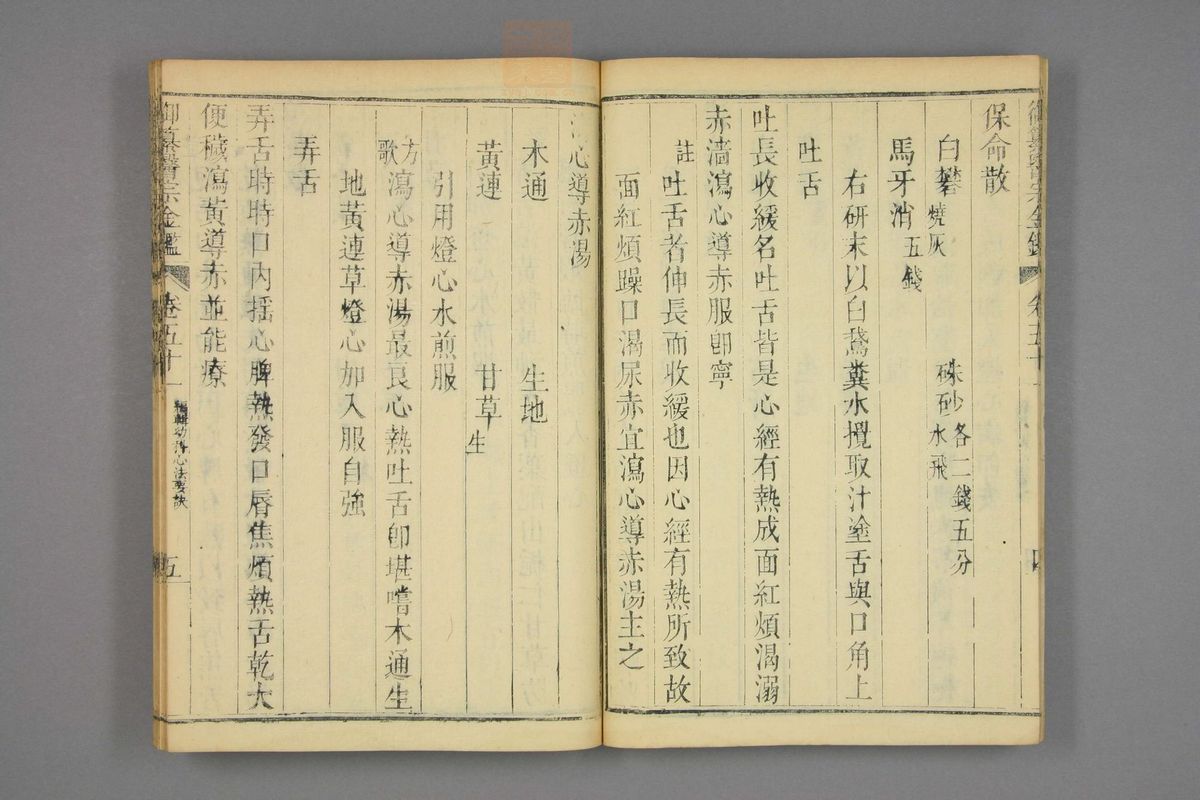 保命散
白礬燒灰 硃砂水飛各二錢五分
馬牙消五錢
右研末以白鵞糞水攪取汁塗舌與口角上
吐舌
吐長收緩名吐舌皆是心經有熱成面紅煩渴溺
赤濇瀉心導赤服卽寧
註吐舌者伸長而收緩也因心經有熱所致故
面紅煩躁口渴尿赤宜瀉心導赤湯主之
御纂醫宗金鑑 卷五十一
心導赤湯
木通 生地
黃連 甘草生
引用燈心水煎服
方歌瀉心導赤湯最良心熱吐舌卽堪嚐木通生
地黃連草燈心加入服自強
弄舌
弄舌時時口內搖心脾熱發口唇焦煩熱舌乾大
便穢瀉黃導赤並能療
御纂醫宗金鑑 卷五十一 編輯幼科心法要訣 五